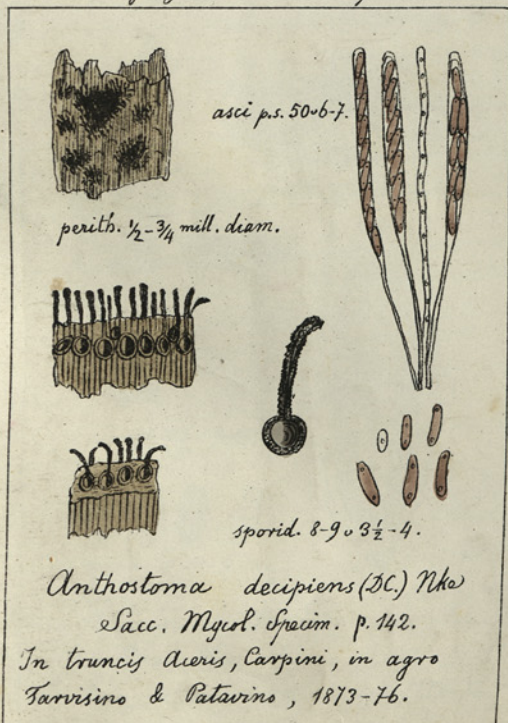 asci p.s. 50υ6-7.
perith. ½-¾ mill. diam.
sporid. 8-9υ3½-4.
Anthostoma decipiens (DC.) Nke
Sacc. Mycol. Specim. p. 142.
In truncis Aceris, Carpini, in agro
Tarvisino & Patavino, 1873-76.